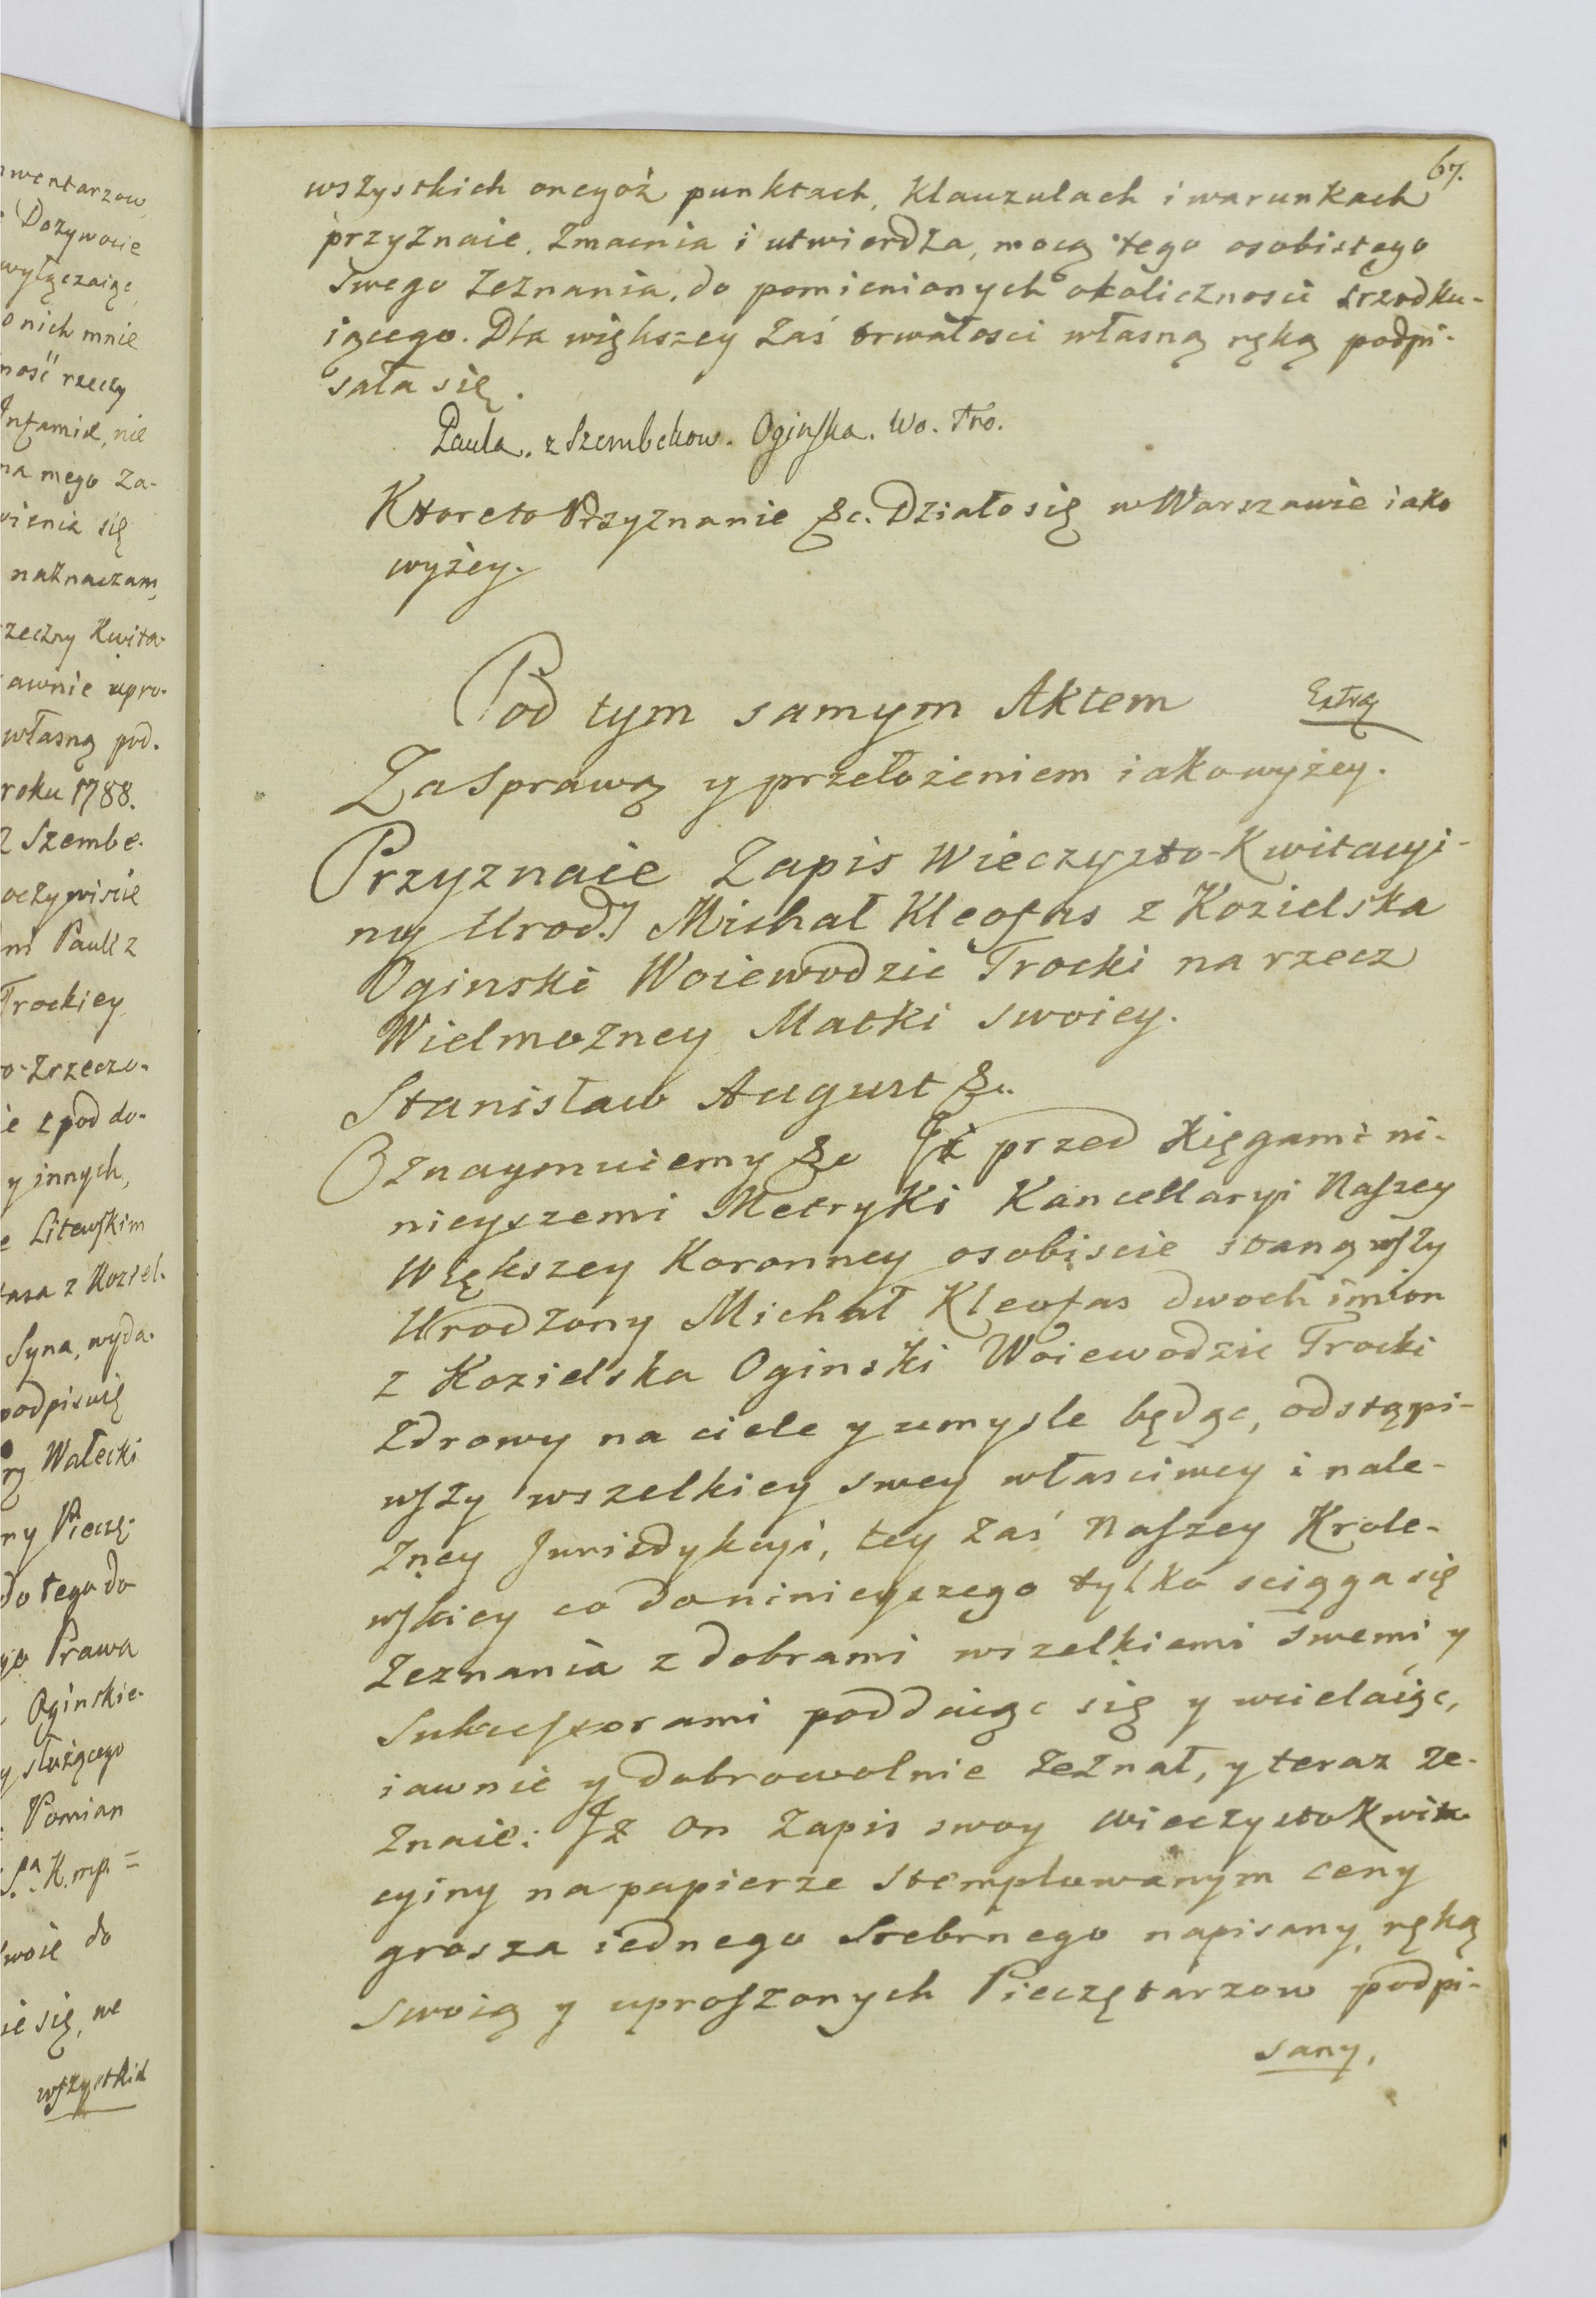 nwentarzow
Dozywocie
wyłączaiąc,
o nich mnie
ność rzeczy
Infamie, nie
na mego Za-
wienia się
naznaczam,
rzeczny Kwita-
awnie upro-
własną pod-
roku 1788.
z Szembe-
oczywiscie
ni Pauli z
Trockiey
o-Zrzeczo-
ie z pod do-
y innych,
e Litewskim
fasa z Koziel-
Syna, wyda-
podpisuię
Wałecki
ny Pieczę-
do tego do
go Prawa
Oginskie-
y służącego
Pomian
K. mp =
swoie do
ie się, we
wszystkich
67.
wszystkich oneyoż punktach, Klauzulach i warunkach
przyznaie, Zmacnia i utwierdza, mocą tego osobistego
Swego Zeznania, do pomienionych okoliczności srzodku-
iącego. Dla większey Zaś trwałości własną ręką podpi-
sała się.
Paula. z Szembekow. Oginska. Wo. Tro.
Ktoreto Przyznanie &c. Działo się w Warszawie iako
wyżey.
Pod tym samym Aktem
Extrą
Za Sprawą y przełożeniem iako wyżey.
Przyznaie Zapis Wieczysto-Kwitacyi-
ny Urod: Michał Kleofas z Kozielska
Oginski Woiewodzic Trocki na rzecz
Wielmożney Matki swoiey.
Stanisław August &c.
Oznaymuiemy &c Iż przed Xięgami ni-
nieyszemi Metryki Kancellaryi Naszey
Większey Koronney osobiscie stanąwszy
Urodzony Michał Kleofas dwoch imion
z Kozielska Oginski Woiewodzic Trocki
Zdrowy na ciele y umysle będąc, odstąpi-
wszy wszelkiey swey własciwey i nale-
Zney Jurisdykcyi, tey Zaś Naszey Krole-
wskiey co do ninieyszego tylko sciąga się
Zeznania z dobrami wszelkiemi swemi y
Sukcessorami poddaiąc się y wcielaiąc,
iawnie y dobrowolnie Zeznał, y teraz Ze-
Znaie: Iż on Zapis swoy Wieczysto Kwita-
cyiny na papierze Stemplowanym ceny
grosza iednego Srebrnego napisany, ręką
Swoią y uproszonych Pieczętarzow podpi-
sany,